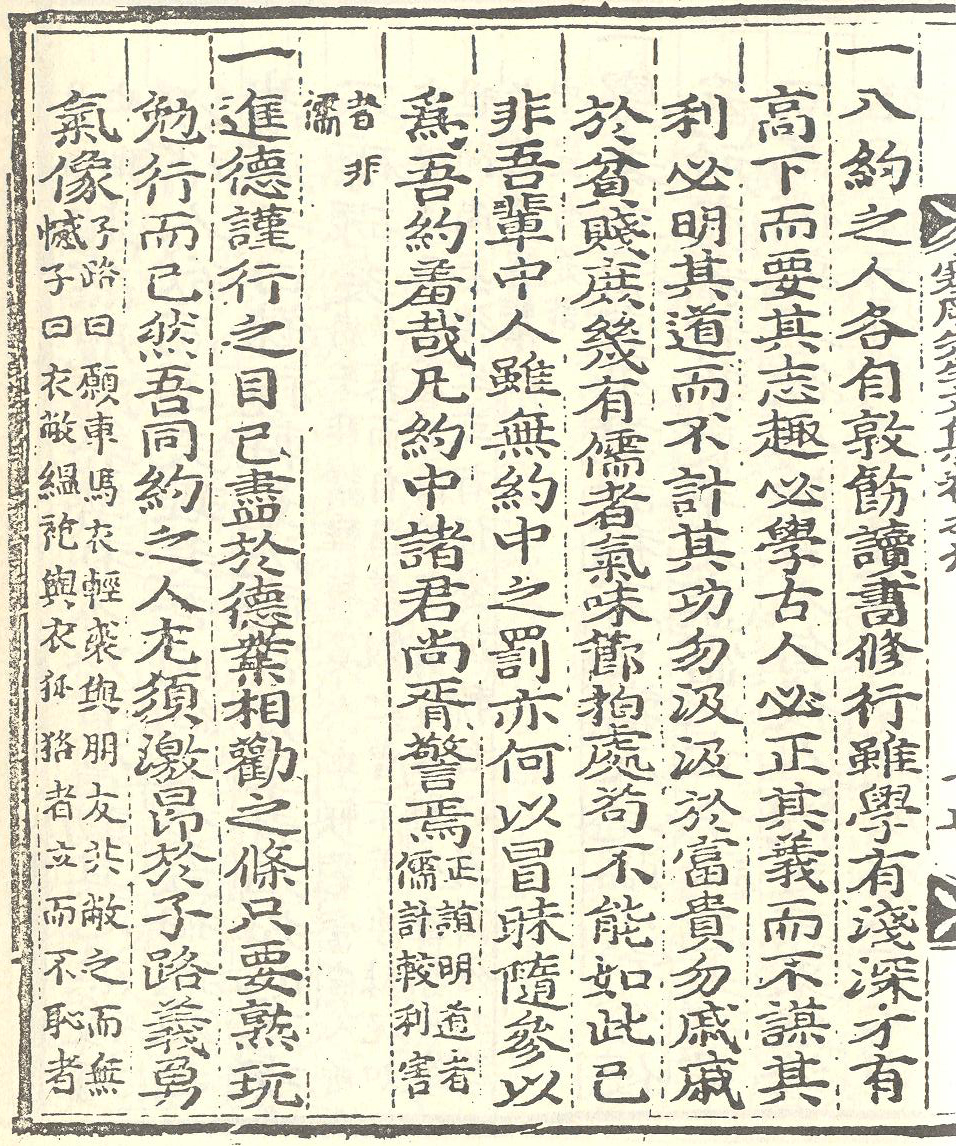 一入約之人各自敦飭讀書修行雖學有淺深才有
高下而要其志趣必學古人必正其義而不謀其
利必明其道而不計其功勿汲汲於富貴勿戚戚
於貧賤庶幾有儒者氣味節拍處苟不能如此已
非吾輩中人雖無約中之罰亦何以冒昧隨參以
爲吾約羞哉凡約中諸君尚胥警焉正誼明道者
儒計較利害
者非
儒
一進德謹行之目已盡於德業相勸之條只要熟玩
勉行而已然吾同約之人尤須激昂於子路義勇
氣像子路曰願車馬衣輕裘與朋友共敝之而無
憾子曰衣敝縕袍與衣狐貉者立而不恥者